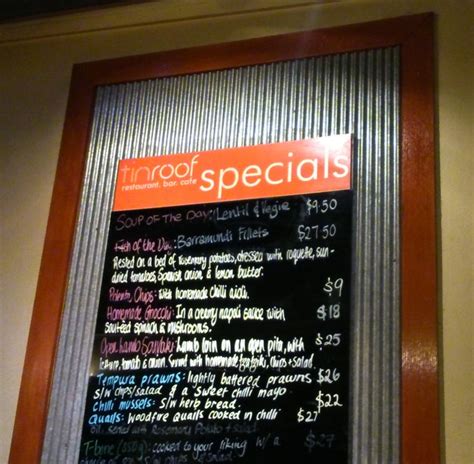 tinroof
restaurant. bar. cafe
specials
Soup of the Day: Lentil & Vegie $9.50
Fish of the Day: Barramundi Fillets $27.50
Rested on a bed of rosemary potatoes, dressed with roquette, sun-
dried tomatoes, Spanish onion & lemon butter.
Potato Chips: with homemade chilli aioli. $9
Homemade Gnocchi: In a creamy napoli sauce with $18
sauteed spinach & mushrooms.
Open Lamb Souvlaki: Lamb loin on an open pita, with $25
lettuce, tomato & onion. Served with homemade tzatziki, chips & salad.
Tempura prawns: lightly battered prawns $26
s/w chips/salad & a sweet chilli mayo
Chilli mussels: s/w herb bread. $22
Quails: Woodfire Quails cooked in chilli $27
oil, served with Rosemary Potato & Salad.
T-bone (550g): cooked to your liking w/ a $27